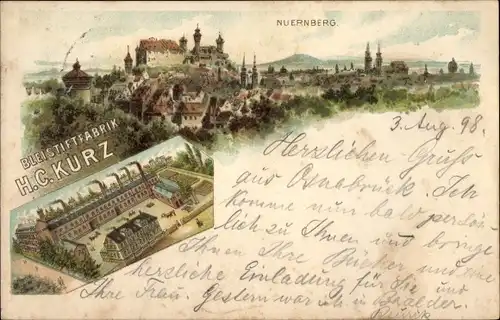 NUERNBERG.
BLEISTIFTFABRIK
H.C. KURZ.
3. Aug. 98.
Herzlichen Gruss
aus Osnabrück. Ich
komme nun bald persön-
lich zu Ihnen und bringe
Ihnen Ihre Bücher und eine
herzliche Einladung für Sie und
Ihre Frau. Gestern war ich in